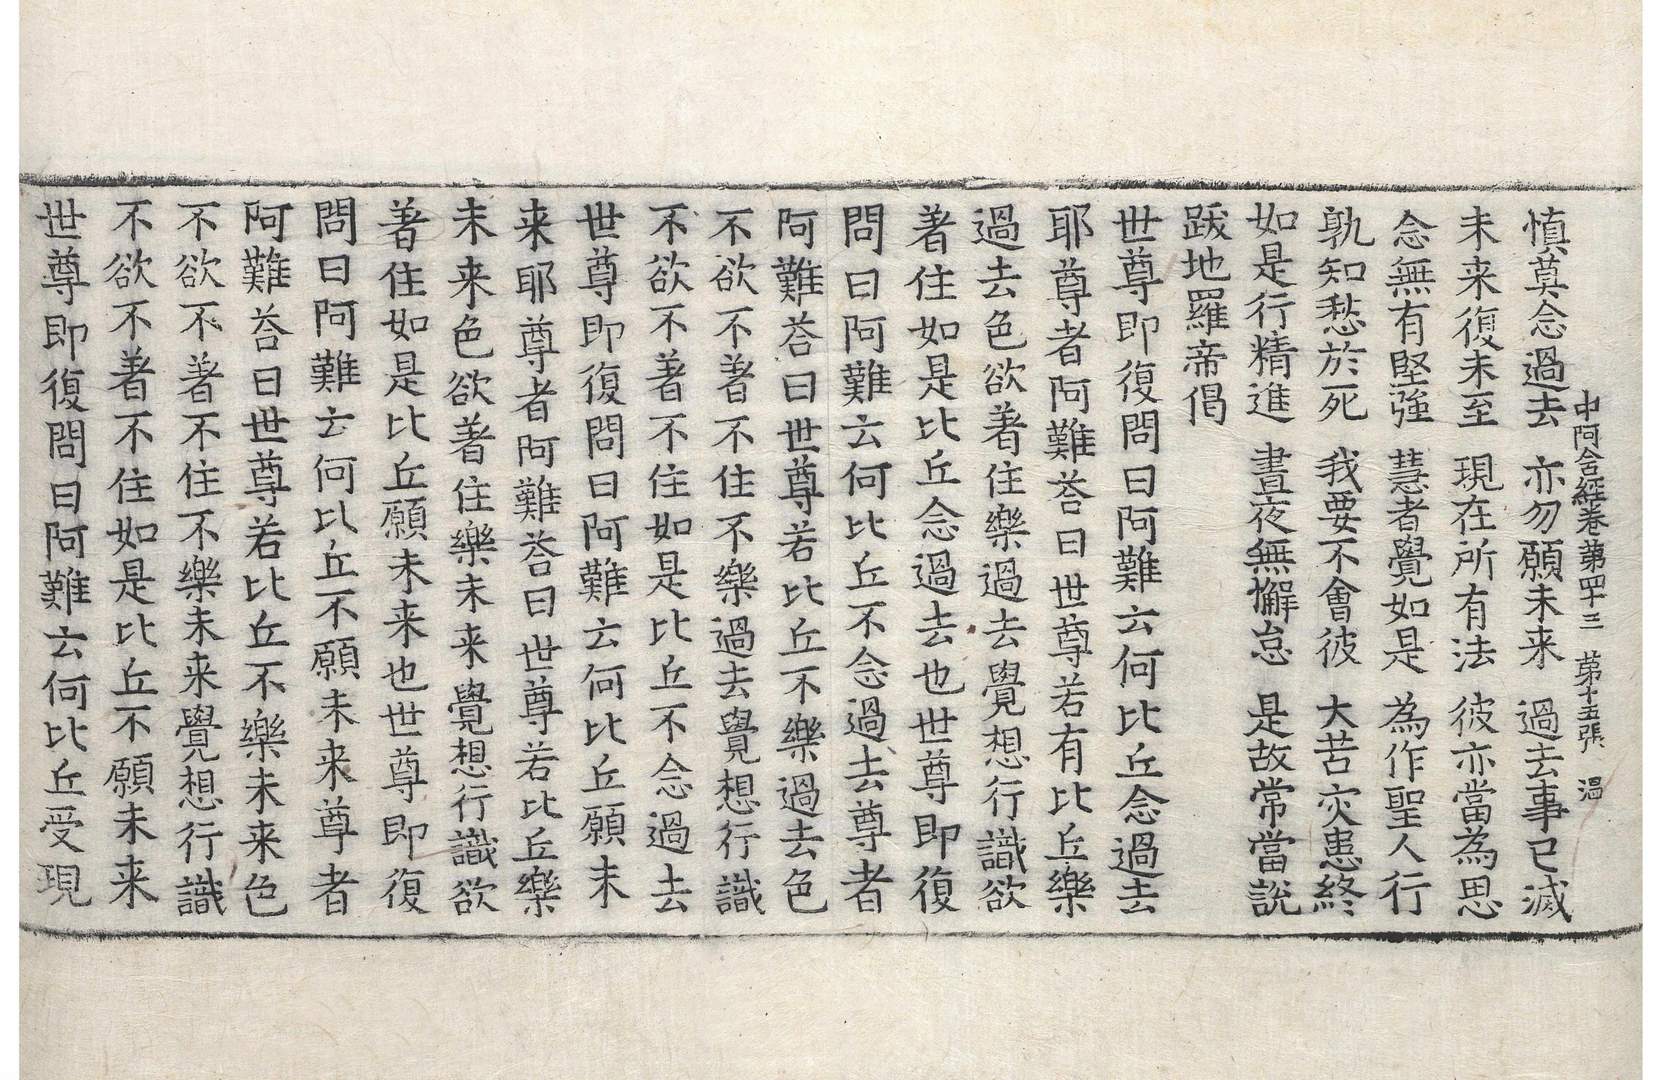 中阿含經卷第四十三　第十五張　溫
慎莫念過去　亦勿願未来　過去事已滅
未来復未至　現在所有法　彼亦當為思
念無有堅強　慧者覺如是　為作聖人行
孰知愁於死　我要不會彼　大苦灾患終
如是行精進　晝夜無懈怠　是故常當說
跋地羅帝偈
世尊即復問曰阿難云何比丘念過去
耶尊者阿難荅曰世尊若有比丘樂
過去色欲著住樂過去覺想行識欲
著住如是比丘念過去也世尊即復
問曰阿難云何比丘不念過去尊者
阿難荅曰世尊若比丘不樂過去色
不欲不著不住不樂過去覺想行識
不欲不著不住如是比丘不念過去
世尊即復問曰阿難云何比丘願未
来耶尊者阿難荅曰世尊若比丘樂
未来色欲著住樂未来覺想行識欲
著住如是比丘願未来也世尊即復
問曰阿難云何比丘不願未来尊者
阿難荅曰世尊若比丘不樂未来色
不欲不著不住不樂未来覺想行識
不欲不著不住如是比丘不願未来
世尊即復問曰阿難云何比丘受現